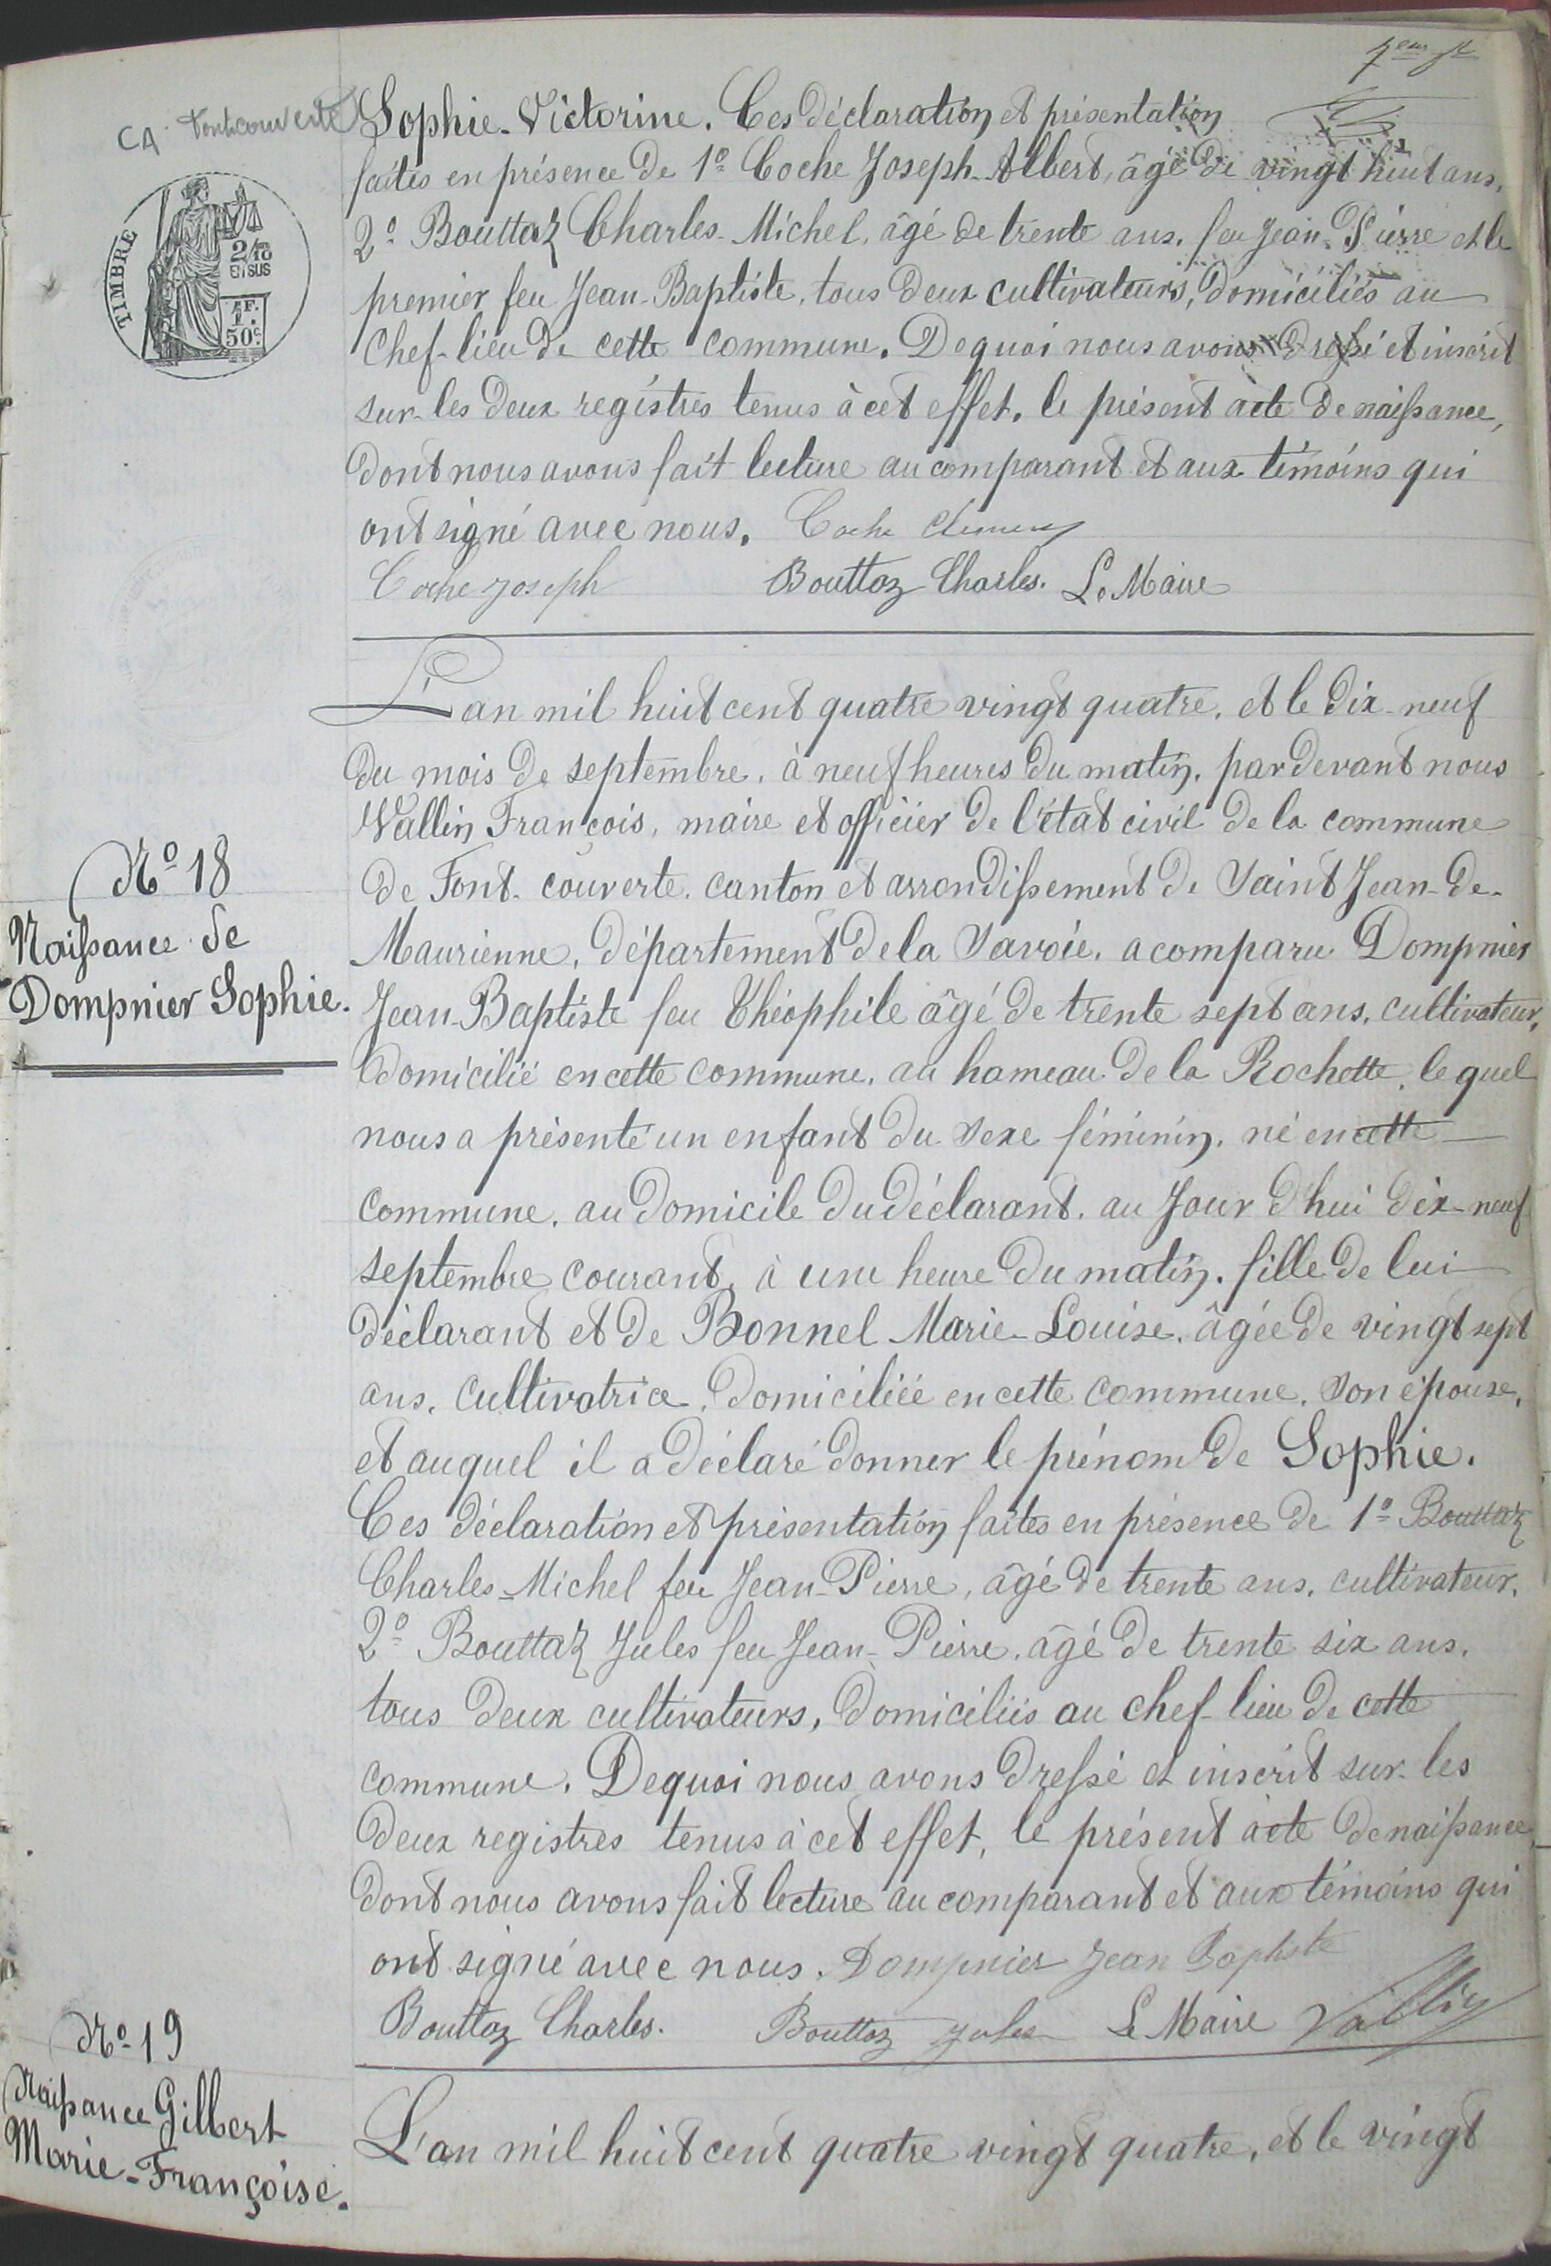 CA. Fontcouverte
TIMBRE
2/10
EN SUS
1F.
50c.
Sophie-Victorine. Ces déclaration et présentation
faites en présence de 1º Coche Joseph-Albert, âgé de vingt huit ans.
2º Bouttaz Charles-Michel, âgé de trente ans, feu Jean-Pierre et le
premier feu Jean-Baptiste, tous deux cultivateurs, domiciliés au
chef-lieu de cette commune. De quoi nous avons dressé et inscrit
sur les deux registres tenus à cet effet, le présent acte de naissance,
dont nous avons fait lecture au comparant et aux témoins qui
ont signé avec nous. Coche
Coche Joseph Bouttaz Charles. Le Maire
L'an mil huit cent quatre vingt quatre, et le dix-neuf
du mois de septembre, à neuf heures du matin, par devant nous
Vallin François, maire et officier de l'état civil de la commune
de Font-couverte, canton et arrondissement de Saint Jean-de-
Maurienne, département de la Savoie, a comparu Dompnier
Jean-Baptiste feu Théophile âgé de trente sept ans, cultivateur,
domicilié en cette commune, au hameau de la Rochette, le quel
nous a présenté un enfant du sexe féminin, né en cette
commune, au domicile du déclarant, au jour d'hui dix-neuf
septembre courant, à une heure du matin, fille de lui
déclarant et de Bonnel Marie-Louise, âgée de vingt sept
ans, cultivatrice, domiciliée en cette commune, son épouse,
et auquel il a déclaré donner le prénom de Sophie.
Ces déclaration et présentation faites en présence de 1º Bouttaz
Charles-Michel feu Jean-Pierre, âgé de trente ans, cultivateur,
2º Bouttaz Jules feu Jean-Pierre, âgé de trente six ans,
tous deux cultivateurs, domiciliés au chef-lieu de cette
commune. De quoi nous avons dressé et inscrit sur les
deux registres tenus à cet effet, le présent acte de naissance,
dont nous avons fait lecture au comparant et aux témoins qui
ont signé avec nous. Dompnier Jean Baptiste
Bouttaz Charles. Bouttaz Jules Le Maire Vallin
L'an mil huit cent quatre vingt quatre, et le vingt
Nº 18
Naissance de
Dompnier Sophie.
Nº 19
Naissance Gilbert
Marie-Françoise.